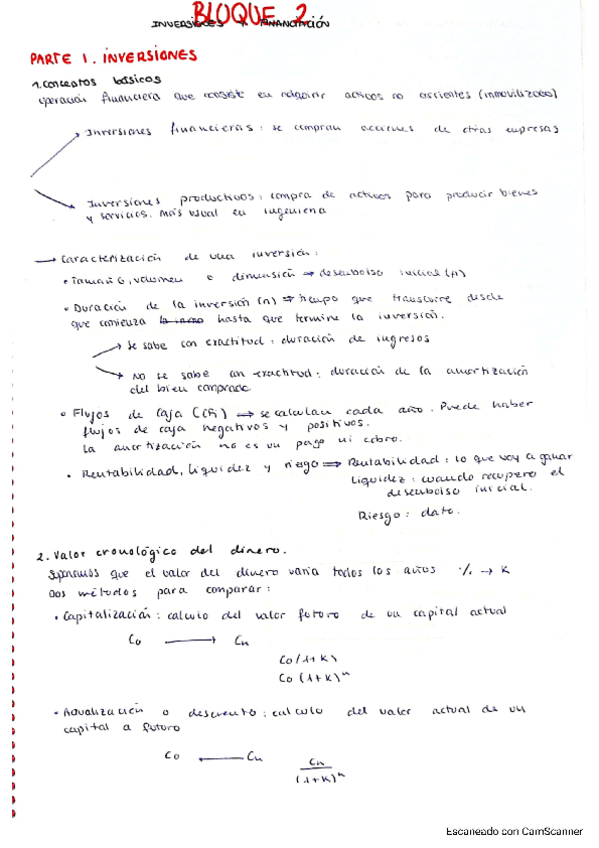 BLOQUE 2
INVERSIONES Y FINANCIACIÓN
PARTE 1. INVERSIONES
1. Conceptos básicos
operación financiera que consiste en adquirir activos no corrientes (inmovilizado)
Inversiones financieras: se compran acciones de otras empresas
Inversiones productivas: compra de activos para producir bienes
y servicios. Más usual en ingeniería
→ Caracterización de una inversión:
• Tamaño, volumen o dimensión ⇒ desembolso inicial (A)
• Duración de la inversión (n) ⇒ tiempo que transcurre desde
que comienza hasta que termine la inversión.
Se sabe con exactitud: duración de ingresos
No se sabe con exactitud: duración de la amortización
del bien comprado
• Flujos de caja ⇒ se calculan cada año. Puede haber
flujos de caja negativos y positivos.
La amortización no es un pago ni cobro.
• Rentabilidad, liquidez y riesgo ⇒ Rentabilidad: lo que voy a ganar
Liquidez: cuando recupero el
desembolso inicial.
Riesgo: dato.
2. Valor cronológico del dinero.
que el valor del dinero varia todos los años % → K
Dos métodos para comparar:
• Capitalización: calculo del valor futuro de un capital actual
Co → Cn
Co(1+K)
Co (1+K)^n
• Actualización o descuento: calculo del valor actual de un
capital a futuro
Co ← Cn
Cn
(1+K)^n
Escaneado con CamScanner